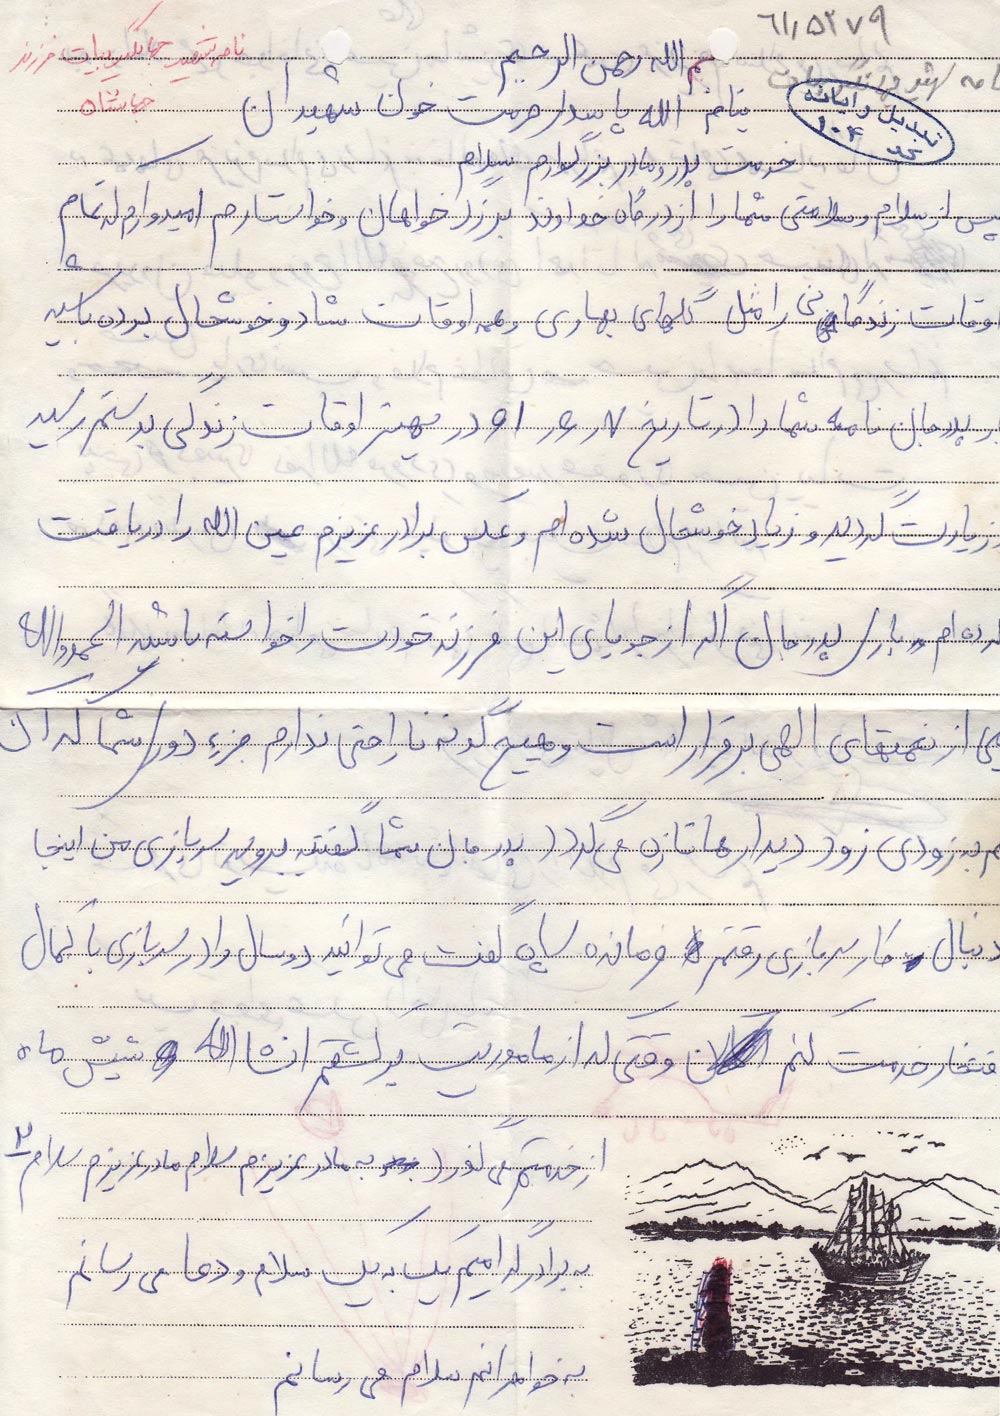 ۶۱٫۵۲۷۹
نامه شهید جهانگیر بیات فرزند
جهانشاه
نامه شهید جهانگیر بیات
تبدیل و رایانه
۱۰۴
بسم الله رحمن الرحیم
بنام الله پاسدار حرمت خون شهیدان
خدمت پدر و مادر بزرگوارم سلام
پس از سلام و سلامتی شما را از درگاه خداوند بزرگ خواهان و خواستارم امیدوارم که تمام
اوقات زندگانی را مثل گلهای بهاری و همه اوقات شاد و خوشحال بوده باشید
پدر جان نامه شما را در تاریخ در بهترین اوقات زندگی بدستم رسید
زیارت گردید و زیاد خوشحال شده ام و عکس برادر عزیزم عین الله را دریافت
کرده ام و بار پدر جان اگر از جویای این فرزند خودت را خواسته باشید الحمدوالله
از نعمتهای الهی برقرار است و هیچ گونه ناراحتی ندارم جزء دوری شما که آن
هم به زودی زود دیدارها تازه می گردد پدر جان شما گفتید بروید سربازی من اینجا
دنبال کار سربازی رفتم فرمانده سپاه گفت می توانید دو سال را در سربازی با کمال
افتخار خدمت کنم وقتی که از ماموریت برگشتم انشاالله شیش ماه
از خدمتم می گذرد به مادر عزیزم سلام مادر عزیزم سلام
به برادر گرامیم یک به یک سلام و دعا می رسانم
به خواهرانم سلام می رسانم
۲